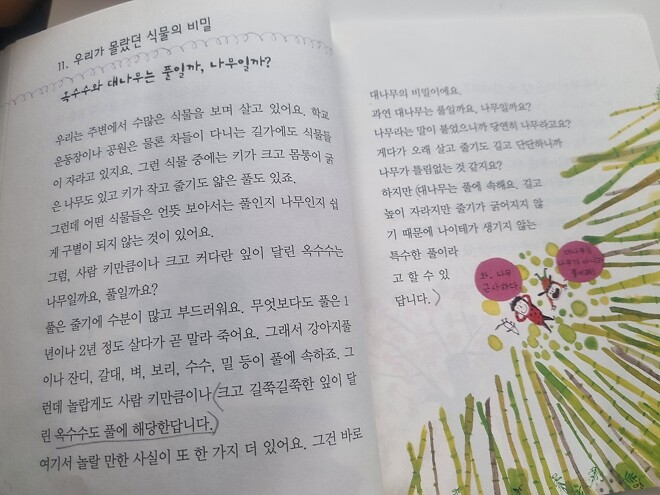 11. 우리가 몰랐던 식물의 비밀
옥수수와 대나무는 풀일까, 나무일까?
우리는 주변에서 수많은 식물을 보며 살고 있어요. 학교
운동장이나 공원은 물론 차들이 다니는 길가에도 식물들
이 자라고 있지요. 그런 식물 중에는 키가 크고 몸통이 굵
은 나무도 있고 키가 작고 줄기도 얇은 풀도 있죠.
그런데 어떤 식물들은 언뜻 보아서는 풀인지 나무인지 쉽
게 구별이 되지 않는 것이 있어요.
그럼, 사람 키만큼이나 크고 커다란 잎이 달린 옥수수는
나무일까요, 풀일까요?
풀은 줄기에 수분이 많고 부드러워요. 무엇보다도 풀은 1
년이나 2년 정도 살다가 곧 말라 죽어요. 그래서 강아지풀
이나 잔디, 갈대, 벼, 보리, 수수, 밀 등이 풀에 속하죠. 그
런데 놀랍게도 사람 키만큼이나 (크고 길쭉길쭉한 잎이 달
린 옥수수도 풀에 해당한답니다.)
여기서 놀랄 만한 사실이 또 한 가지 더 있어요. 그건 바로
대나무의 비밀이에요.
과연 대나무는 풀일까요, 나무일까요?
나무라는 말이 붙었으니까 당연히 나무라고요?
게다가 오래 살고 줄기도 길고 단단하니까
나무가 틀림없는 것 같지요?
하지만 (대나무는 풀에 속해요. 길고
높이 자라지만 줄기가 굵어지지 않
기 때문에 나이테가 생기지 않는
특수한 풀이라
고 할 수 있
답니다.)
와, 나무
근사하다